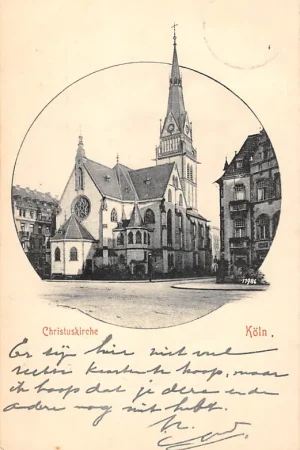 17986
Christuskirche Köln.
Er zijn hier niet veel
kaarten te koop, maar
ik hoop dat je deze en de
andere nog niet hebt.